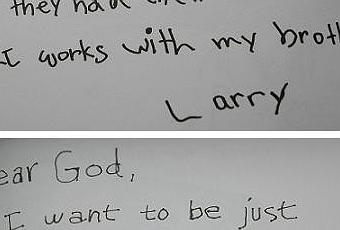 they had
I works with my
Larry
God,
I want to be just